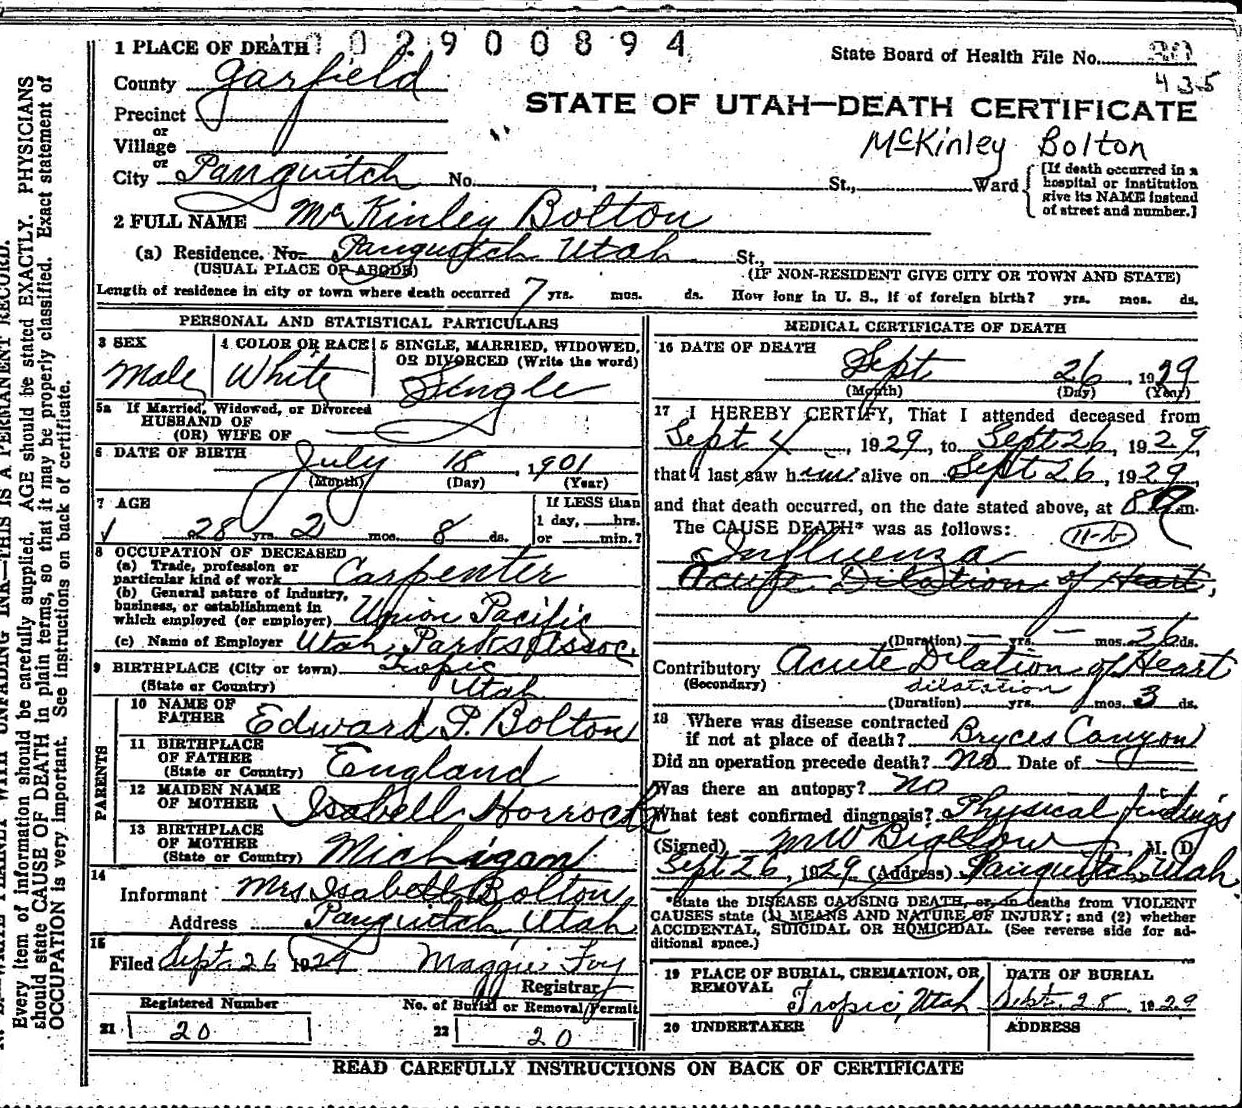 002900894
State Board of Health File No. 20
435
STATE OF UTAH—DEATH CERTIFICATE
McKinley Bolton
1 PLACE OF DEATH
County Garfield
Precinct
or
Village
or
City Panguitch No. , St., Ward
[If death occurred in a hospital or institution give its NAME instead of street and number.]
2 FULL NAME McKinley Bolton
(a) Residence. No. Panguitch Utah St.,
(USUAL PLACE OF ABODE) (IF NON-RESIDENT GIVE CITY OR TOWN AND STATE)
Length of residence in city or town where death occurred 7 yrs. mos. ds. How long in U. S., if of foreign birth? yrs. mos. ds.
PERSONAL AND STATISTICAL PARTICULARS
3 SEX
Male
4 COLOR OR RACE
White
5 SINGLE, MARRIED, WIDOWED, OR DIVORCED (Write the word)
Single
5a If Married, Widowed, or Divorced
HUSBAND OF
(OR) WIFE OF
6 DATE OF BIRTH July 18, 1901
(Month) (Day) (Year)
7 AGE
28 yrs. 2 mos. 8 ds.
If LESS than
1 day, hrs.
or min.?
8 OCCUPATION OF DECEASED
(a) Trade, profession or
particular kind of work Carpenter
(b) General nature of industry,
business, or establishment in
which employed (or employer) Union Pacific
(c) Name of Employer Utah Parks Assoc.
9 BIRTHPLACE (City or town) Tropic
(State or Country) Utah
PARENTS
10 NAME OF FATHER Edward P. Bolton
11 BIRTHPLACE OF FATHER
(State or Country) England
12 MAIDEN NAME OF MOTHER Isabell Horrocks
13 BIRTHPLACE OF MOTHER
(State or Country) Michigan
14
Informant Mrs Isabell Bolton
Address Panguitch Utah
15
Filed Sept 26 1929 Maggie Foy
Registrar
Registered Number
21 20
No. of Burial or Removal Permit
22 20
MEDICAL CERTIFICATE OF DEATH
16 DATE OF DEATH
Sept 26, 1929
(Month) (Day) (Year)
17 I HEREBY CERTIFY, That I attended deceased from
Sept 4, 1929, to Sept 26, 1929,
that I last saw him alive on Sept 26, 1929
and that death occurred, on the date stated above, at 8 m.
The CAUSE DEATH* was as follows: 11-b
Influenza
Acute Dilation of Heart,
(Duration) — yrs. — mos. 26 ds.
Contributory Acute Dilation of Heart
(Secondary) dilatation
(Duration) yrs. mos. 3 ds.
18 Where was disease contracted
if not at place of death? Bryces Canyon
Did an operation precede death? No Date of
Was there an autopsy? No
What test confirmed diagnosis? Physical findings
(Signed) MW Bigelow, M. D.
Sept 26, 1929 (Address) Panguitch, Utah
*State the DISEASE CAUSING DEATH, or, in deaths from VIOLENT
CAUSES state (1) MEANS AND NATURE OF INJURY; and (2) whether
ACCIDENTAL, SUICIDAL OR HOMICIDAL. (See reverse side for ad-
ditional space.)
19 PLACE OF BURIAL, CREMATION, OR REMOVAL
Tropic, Utah
DATE OF BURIAL
Sept. 28 1929
20 UNDERTAKER
ADDRESS
READ CAREFULLY INSTRUCTIONS ON BACK OF CERTIFICATE
WRITE PLAINLY WITH UNFADING INK—THIS IS A PERMANENT RECORD.
Every item of information should be carefully supplied. AGE should be stated EXACTLY. PHYSICIANS
should state CAUSE OF DEATH in plain terms, so that it may be properly classified. Exact statement of
OCCUPATION is very important. See instructions on back of certificate.